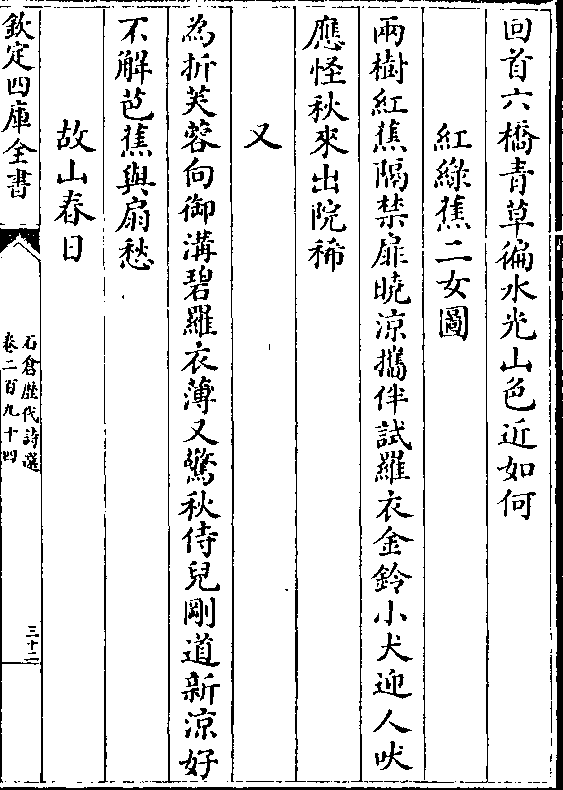 回首六橋青草徧水光山色近如何
紅綠蕉二女圖
兩樹紅蕉隔禁扉曉涼攜伴試羅衣金鈴小犬迎人吠
應怪秋來出院稀
又
為折芙蓉向御溝碧羅衣薄又驚秋侍兒剛道新涼好
不解芭蕉與扇愁
故山春日
欽定四庫全書
石倉歷代詩選
卷二百九十四
三十二